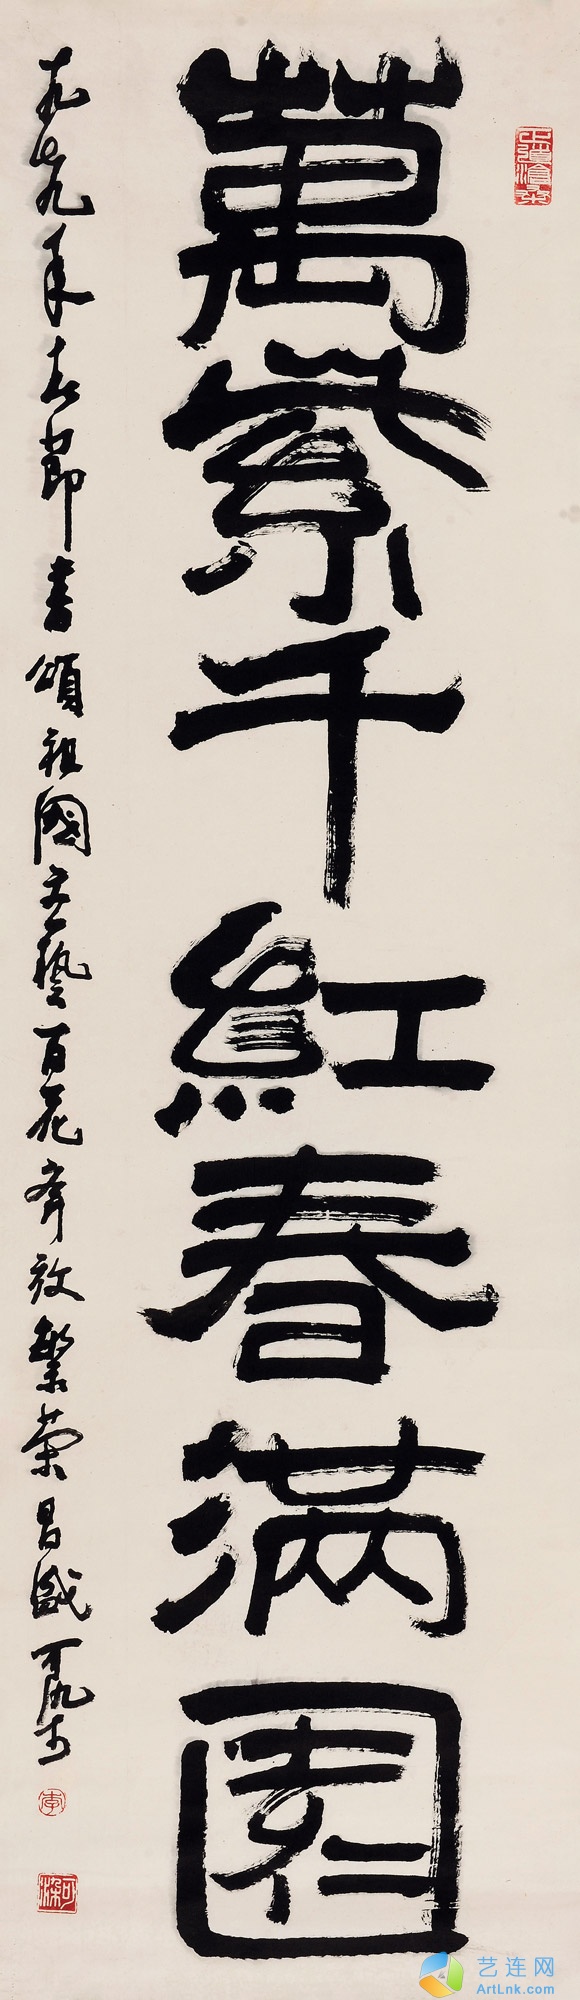 萬紫千紅春滿園
一九七九年春節書頌祖國文藝百花齊放繁榮昌盛 可染
李
可染
艺连网
ArtLnk.com